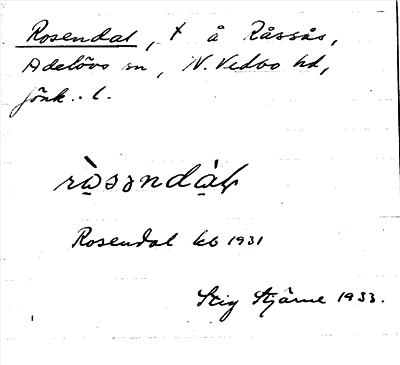 Rosendal, t å Råssås,
Adelövs sn, N. Vedbo hd,
Jönk. l.
Rosendal kb 1931
Stig Stjärne 1933.